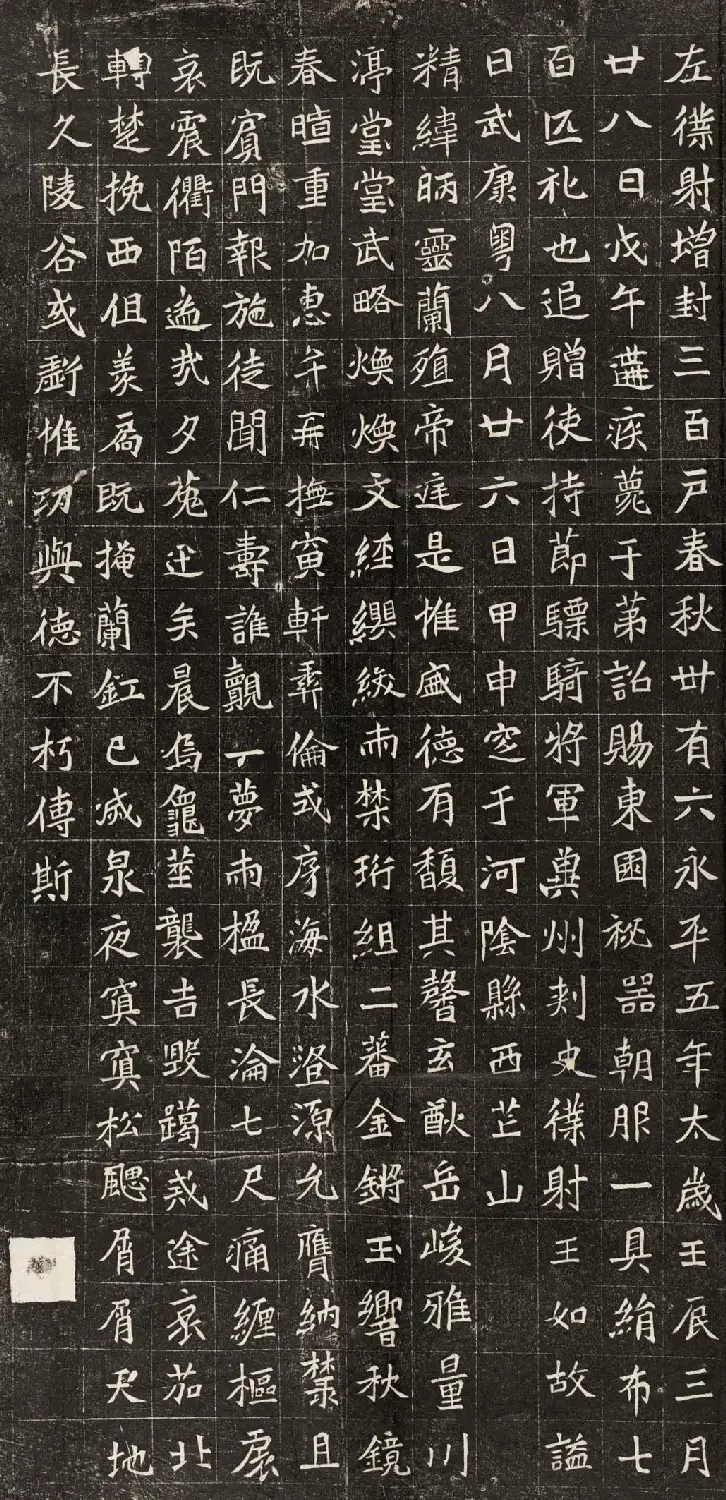 左僕射增封三百戶春秋卅有六永平五年太歲壬辰三月
廿八日戊午遘疾薨于第詔賜東園祕器朝服一具絹布七
百匹礼也追贈使持節驃騎將軍冀州刺史僕射王如故謚
曰武康粵八月廿六日甲申窆于河陰縣西芒山
精緯昞靈蘭殖帝庭是惟盛德有馥其馨玄猷岳峻雅量川
渟堂堂武略煥煥文經纓緌兩禁珩組二蕃金鏘玉響秋鏡
春暄重加惠弁再撫寅軒彝倫式序海水澄源允膺納禁且
既賓門報施徒聞仁壽誰覿一夢兩楹長淪七尺痛纏樞扆
哀震衢陌逝哉夕菟迅矣晨烏龜筮襲吉毀躅戒途哀茄北
轉楚挽西徂羨扃既掩蘭釭已滅泉夜寘寘松颸屑屑天地
長久陵谷或虧惟功與德不朽傳斯